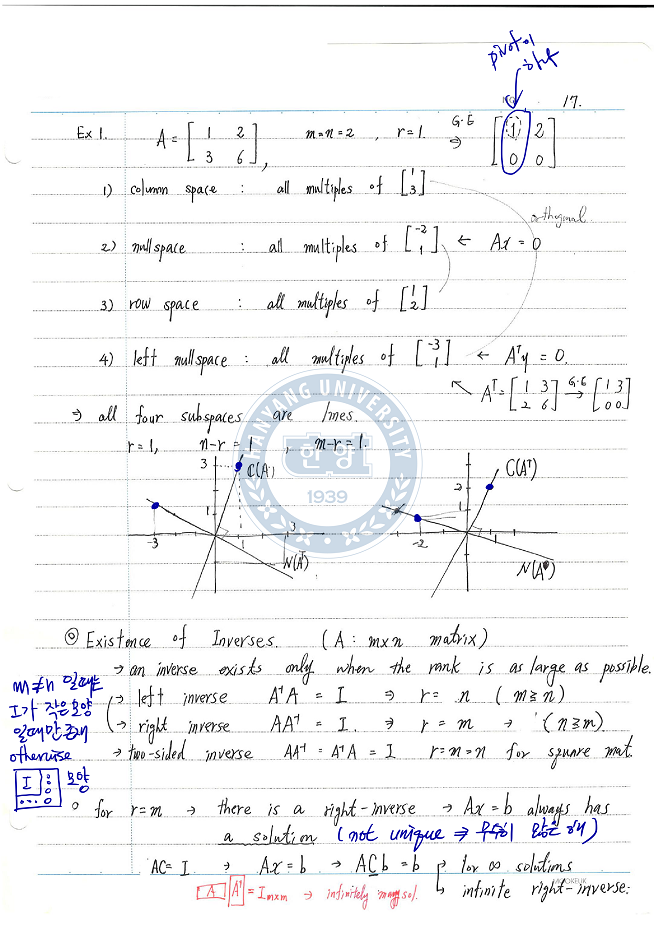 pivot이
하나
17.
Ex 1. A = [1 2; 3 6], m=n=2, r=1. G.E ⇒ [1 2; 0 0]
1) column space : all multiples of [1; 3]
orthogonal
2) nullspace : all multiples of [-2; 1] ← Ax = 0
3) row space : all multiples of [1; 2]
4) left nullspace : all multiples of [-3; 1] ← Aᵀy = 0.
Aᵀ = [1 3; 2 6] G.E → [1 3; 0 0]
⇒ all four subspaces are lines.
r=1, n-r = 1, m-r=1.
HANYANG UNIVERSITY
한양
1939
3 C(A) 1 -3 3 N(Aᵀ)
C(Aᵀ) 2 1 -2 1 N(A)
◎ Existence of Inverses. (A : m×n matrix)
→ an inverse exists only when the rank is as large as possible.
→ left inverse A⁻¹A = I ⇒ r = n (m≥n)
→ right inverse AA⁻¹ = I. ⇒ r = m → (n≥m).
→ two-sided inverse AA⁻¹ = A⁻¹A = I r=m=n for square mat.
m≠n 일때는
I가 작은모양
일때만 존재
otherwise
I 모양
∘ for r=m → there is a right-inverse → Ax=b always has
a solution (not unique ⇒ 무수히 많은 해)
AC= I → Ax=b → ACb=b → for ∞ solutions
→ infinite right-inverse.
A A⁻¹ = I m×m → infinitely many sol.